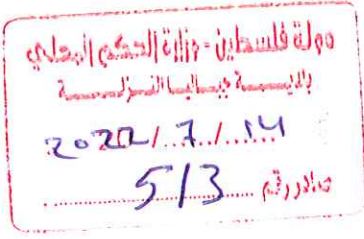 دولة فلسطين - وزارة الحكم المحلي
بلديـــة جباليا النـزلـــة
2022/7/14
صادر رقم 513